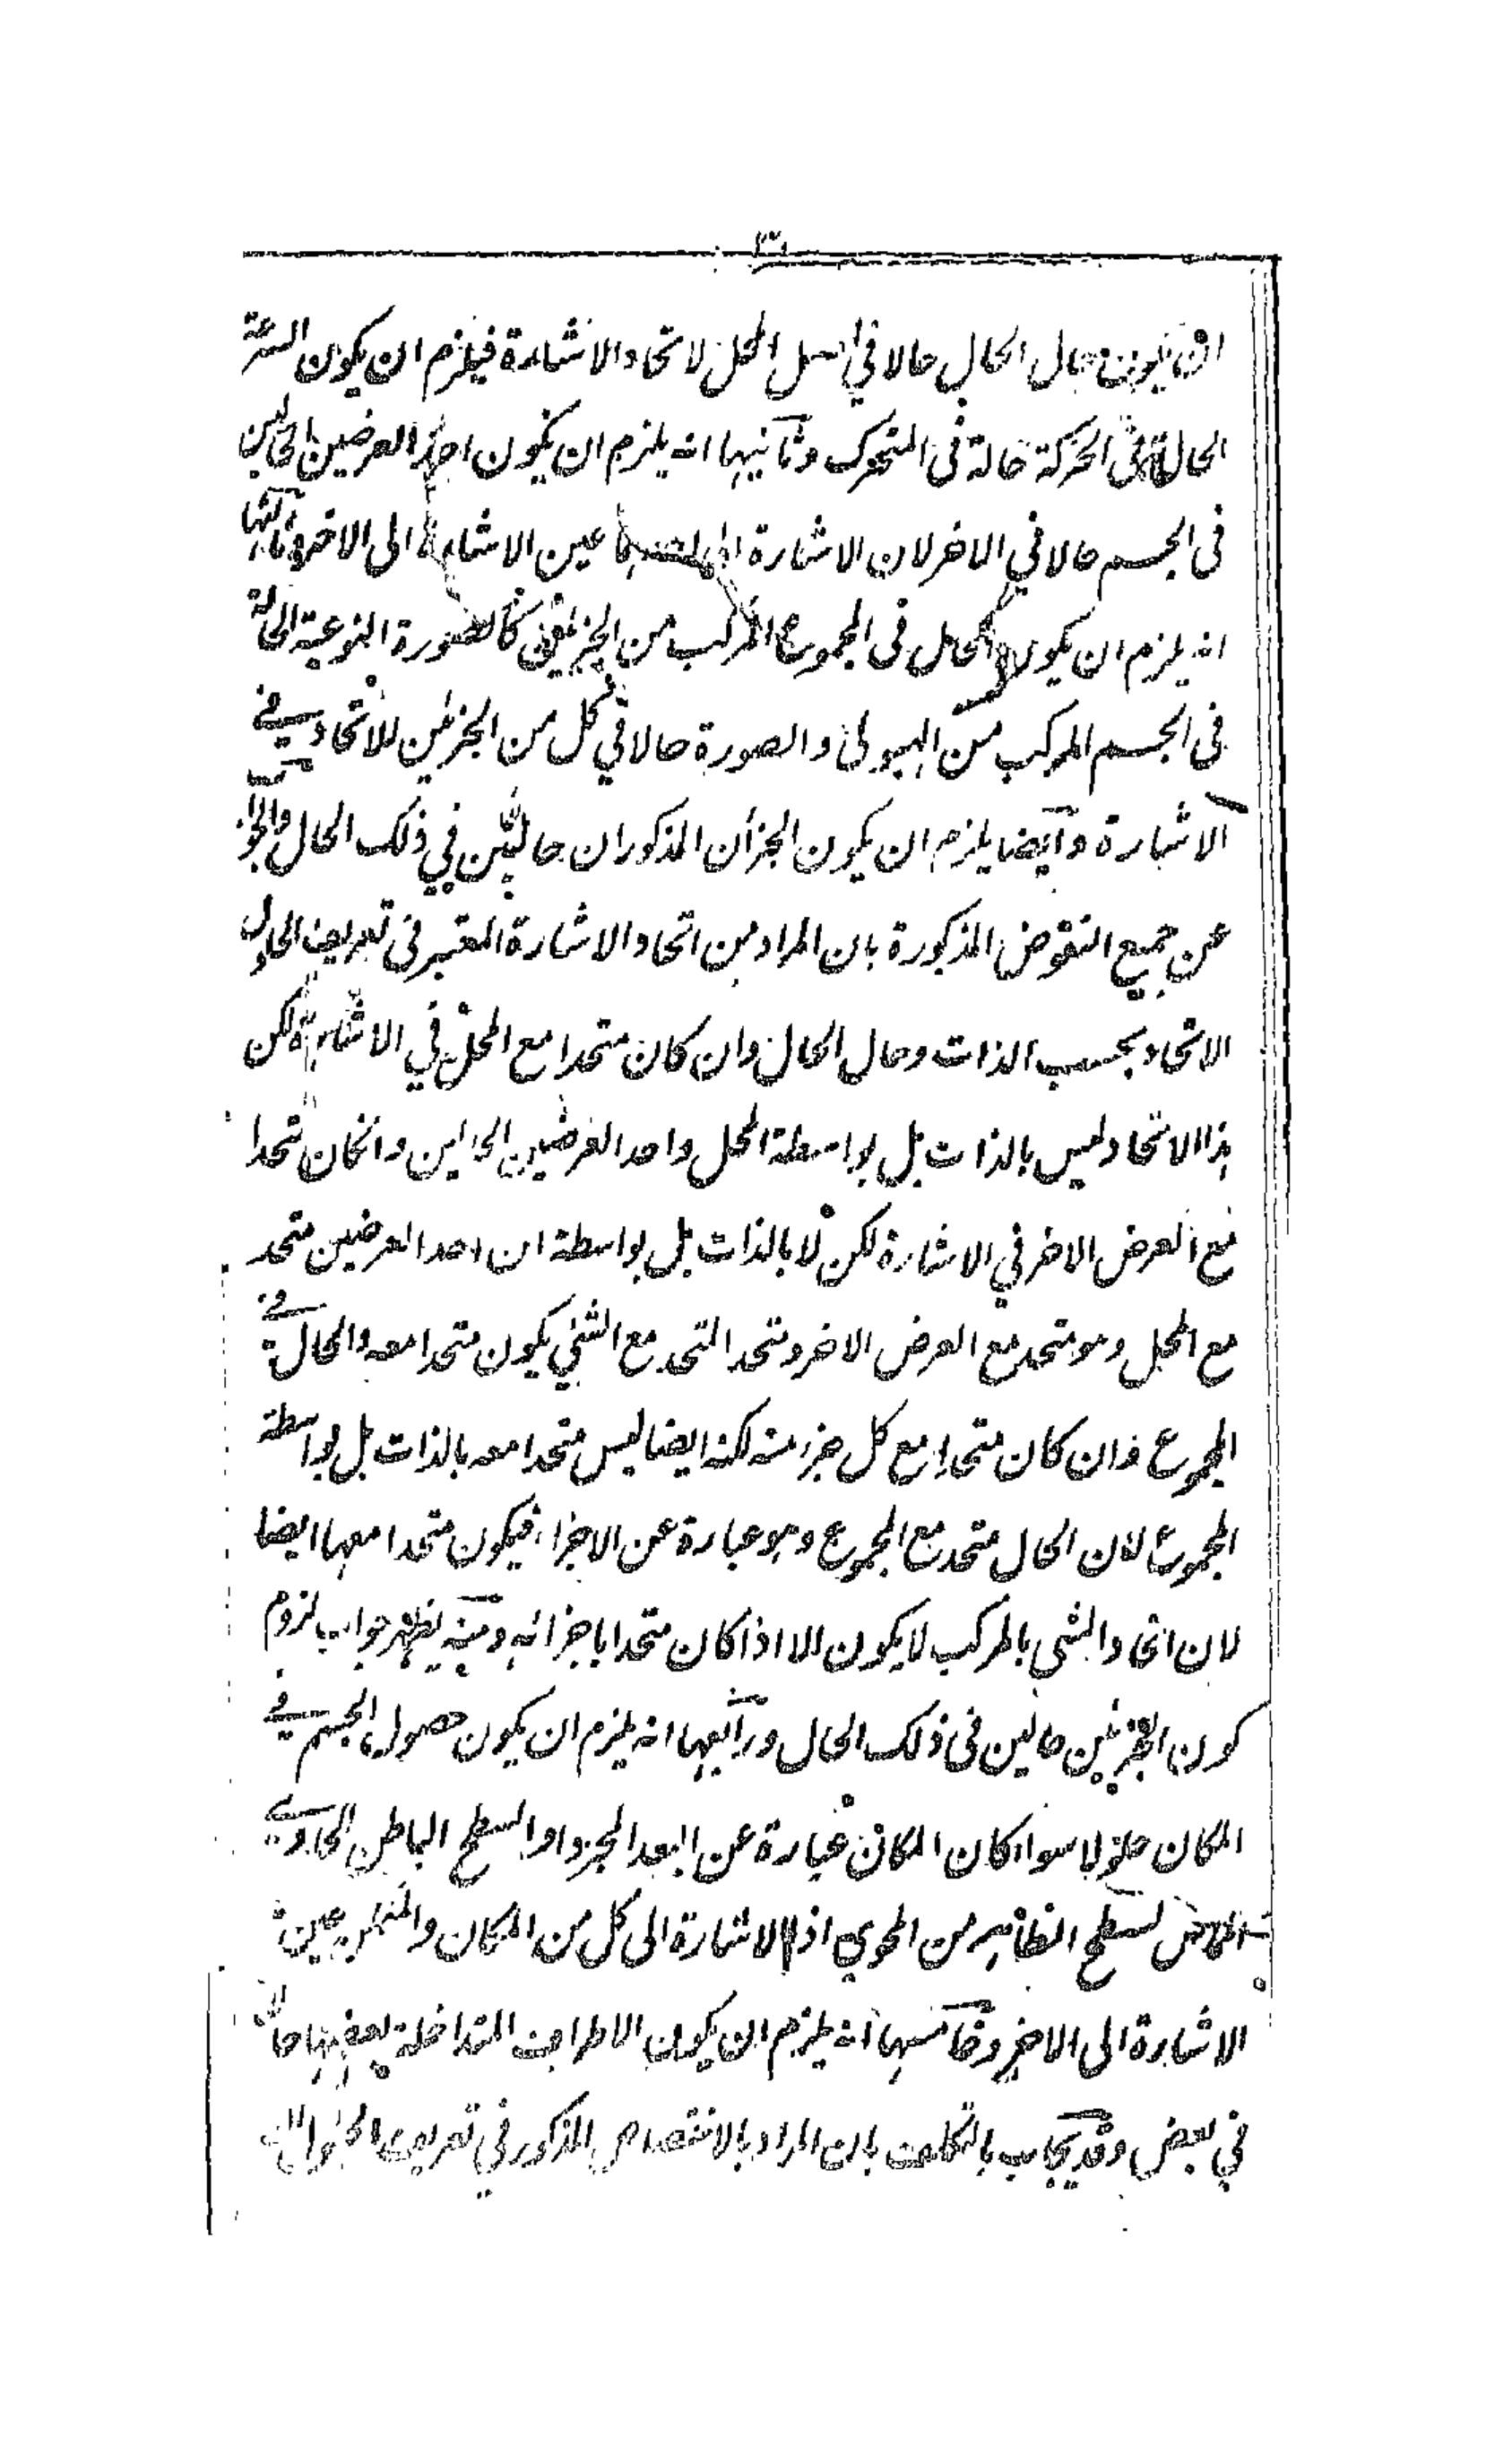 ٣
ان يكون حال الحال حالا في اصل المحل لاتحاد الاشارة فيلزم ان يكون السرعة
الحالة فى الحركة حالة فى المتحرك وثانيها انه يلزم ان يكون احد العرضين الحالين
فى الجسم حالا في الاخر لان الاشارة الى احدهما عين الاشارة الى الاخر وثالثها
انه يلزم ان يكون الحال فى المجموع المركب من الجزئين كالصورة النوعية الحالة
فى الجسم المركب من الهيولى والصورة حالا في كل من الجزئين للاتحاد في
الاشارة وايضا يلزم ان يكون الجزأن المذكوران حالين في ذلك الحال والجواب
عن جميع النقوض المذكورة بان المراد من اتحاد الاشارة المعتبر فى تعريف الحلول
الاتحاد بحسب الذات وحال الحال وان كان متحدا مع المحل في الاشارة لكن
هذا الاتحاد ليس بالذات بل بواسطة المحل واحد العرضين الحالين وانكان متحدا
مع العرض الاخر في الاشارة لكن لا بالذات بل بواسطة ان احد العرضين متحد
مع المحل وهو متحد مع العرض الاخر ومتحد المتحد مع الشئ يكون متحدا معه والحال في
المجموع وان كان متحدا مع كل جزء منه لكنه ايضا ليس متحدا معه بالذات بل بواسطة
المجموع لان الحال متحد مع المجموع وهو عبارة عن الاجزاء فيكون متحدا معها ايضا
لان اتحاد الشى بالمركب لا يكون الا اذا كان متحدا باجزائه ومنه يظهر جواب لزوم
كون الجزئين حالين فى ذلك الحال ورابعها انه يلزم ان يكون حصول الجسم في
المكان حلولا سواء كان المكان عبارة عن البعد المجرد او السطح الباطن الحاوي
المماس لسطح الظاهر من المحوي اذ الاشارة الى كل من المكان والمتمكن عين
الاشارة الى الاخر وخامسها انه يلزم ان يكون الاطراف المتداخلة بعضها حالا
في بعض وقد يجاب بالتكلف بان المراد بالاختصاص المذكور في تعريف الحلول